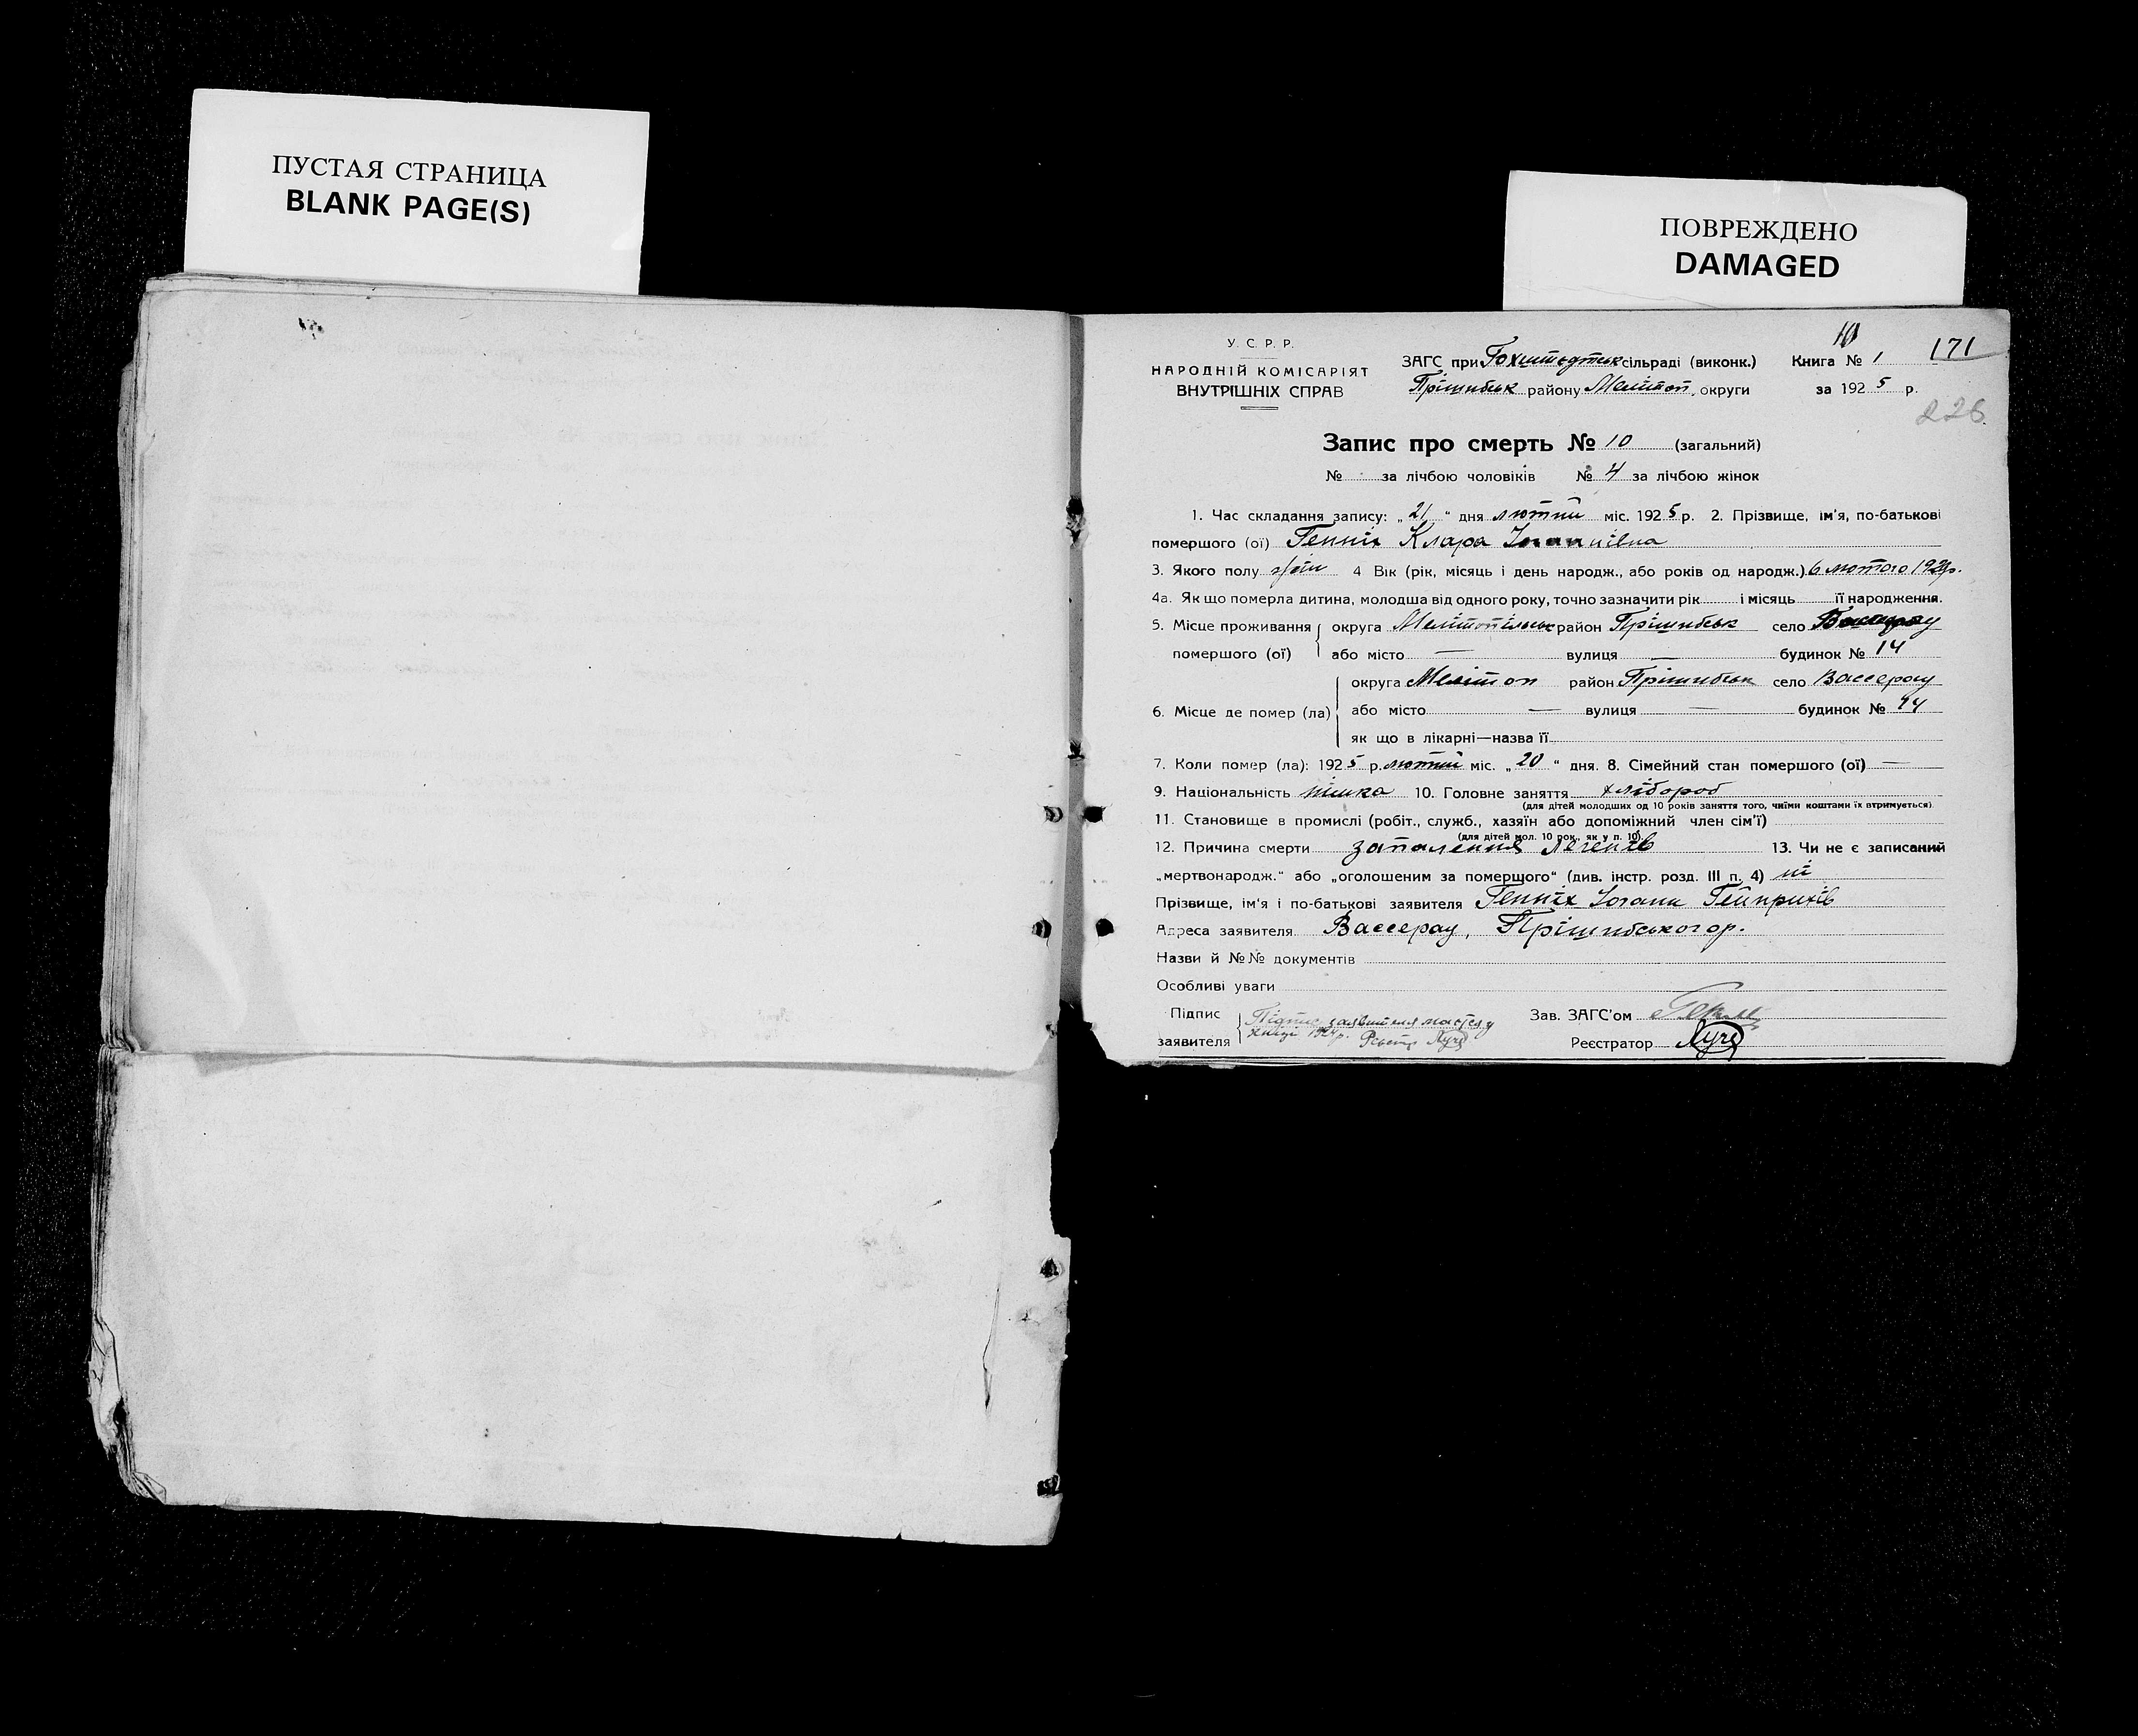 ПУСТАЯ СТРАНИЦА
BLANK PAGE(S)
ПОВРЕЖДЕНО
DAMAGED
У. С. Р. Р.
НАРОДНІЙ КОМІСАРІЯТ
ВНУТРІШНІХ СПРАВ
ЗАГС при Гохштедтськ сільраді (виконк.)
Прішибськ району Мелітоп. округи
Книга № 1 171
за 1925 р.
226
Запис про смерть № 10 (загальний)
№ за лічбою чоловіків № 4 за лічбою жінок
1. Час складання запису: „21“ дня лютий міс. 1925 р. 2. Прізвище, ім'я, по-батькові
помершого (ої) Генніх Клара Іоганнівна
3. Якого полу жін 4 Вік (рік, місяць і день народж., або років од народж.) 6 лютого
4а. Як що померла дитина, молодша від одного року, точно зазначити рік і місяць її народження.
5. Місце проживання округа Мелітопільськ район Прішибськ село Вассерау
помершого (ої) або місто — вулиця — будинок № 14
округа Мелітоп район Прішибськ село Вассерау
6. Місце де помер (ла) або місто — вулиця — будинок № 14
як що в лікарні—назва її
7. Коли помер (ла): 1925 р. лютий міс. „20“ дня. 8. Сімейний стан помершого (ої) —
9. Національність німка 10. Головне заняття хлібороб
(для дітей молодших од 10 років заняття того, чиїми коштами їх втримується)
11. Становище в промислі (робіт., служб., хазяїн або допоміжний член сім'ї)
(для дітей мол. 10 рок., як у п. 10).
12. Причина смерти запалення легенів 13. Чи не є записаний
„мертвонародж.“ або „оголошеним за помершого“ (див. інстр. розд. III п. 4) ні
Прізвище, ім'я і по-батькові заявителя Генніх Іоганн Гейнрихів
Адреса заявителя Вассерау, Прішибського р.
Назви й №№ документів
Особливі уваги
Підпис Підпис заявителя
заявителя книзі 1924 р. Реєстр
Зав. ЗАГС'ом
Реєстратор